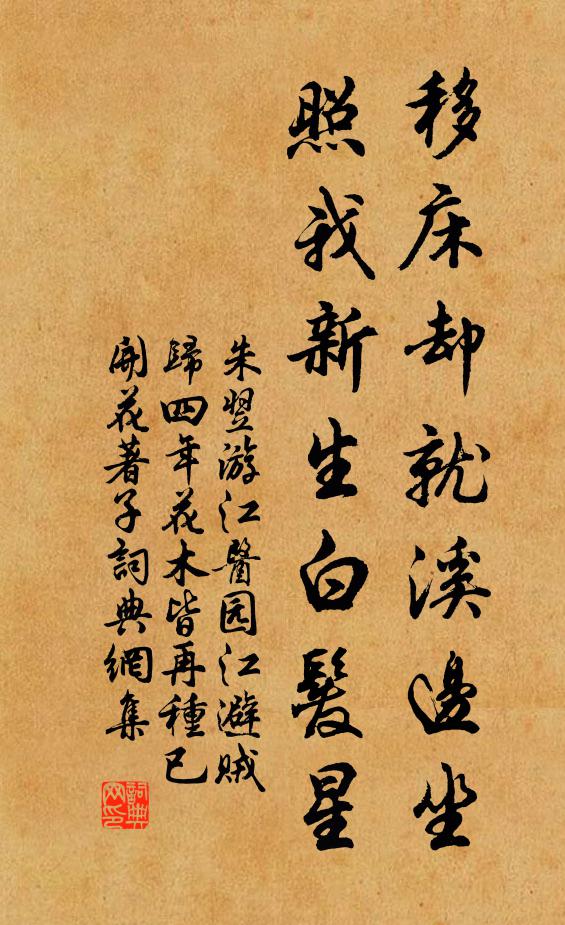 移床却就溪邊坐
照我新生白髮星
朱翌游江醫园江避賊
歸四年花木皆再種已
開花著子詞典網集
詞典
网印